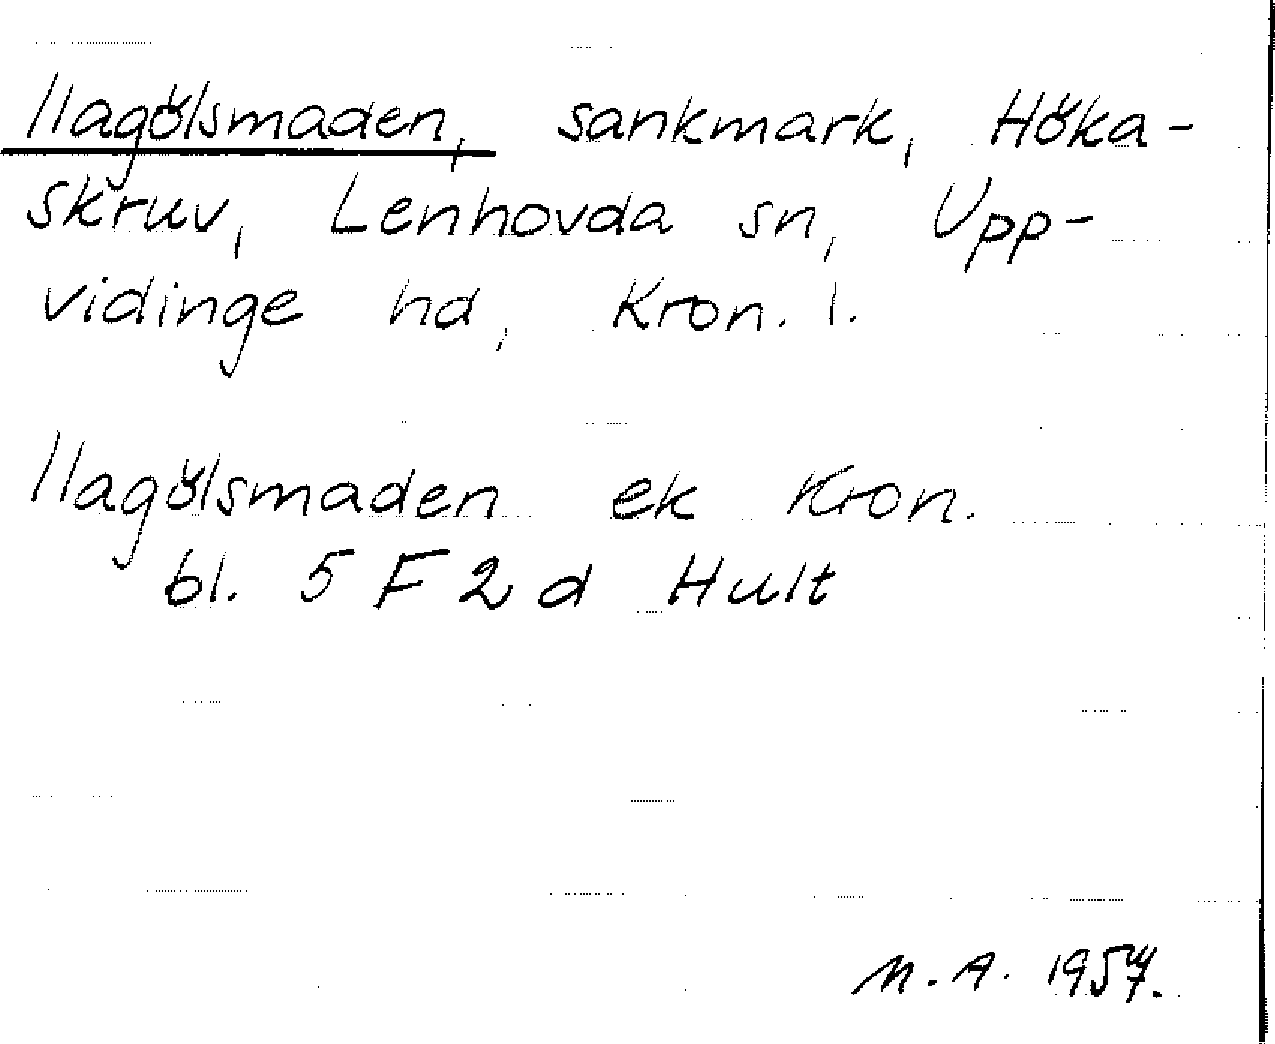 Ilagölsmaden, sankmark, Höka-
skruv, Lenhovda sn, Upp-
vidinge hd, Kron. l.
Ilagölsmaden ek Kron.
bl. 5 F 2 d Hult
M. A. 1957.